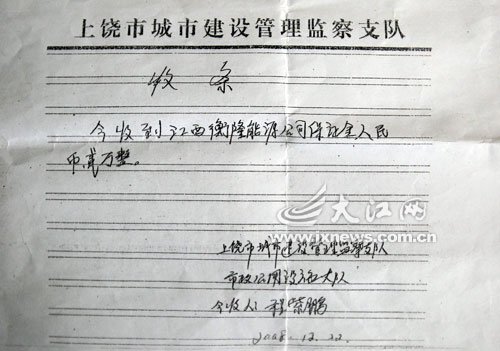 上饶市城市建设管理监察支队
收条
今收到江西衡隆能源公司保证金人民
币贰万整。
大江网
www.jxnews.com.cn
上饶市城市建设管理监察支队
市政公用设施大队
今收人:程荣鹏
2008.12.22